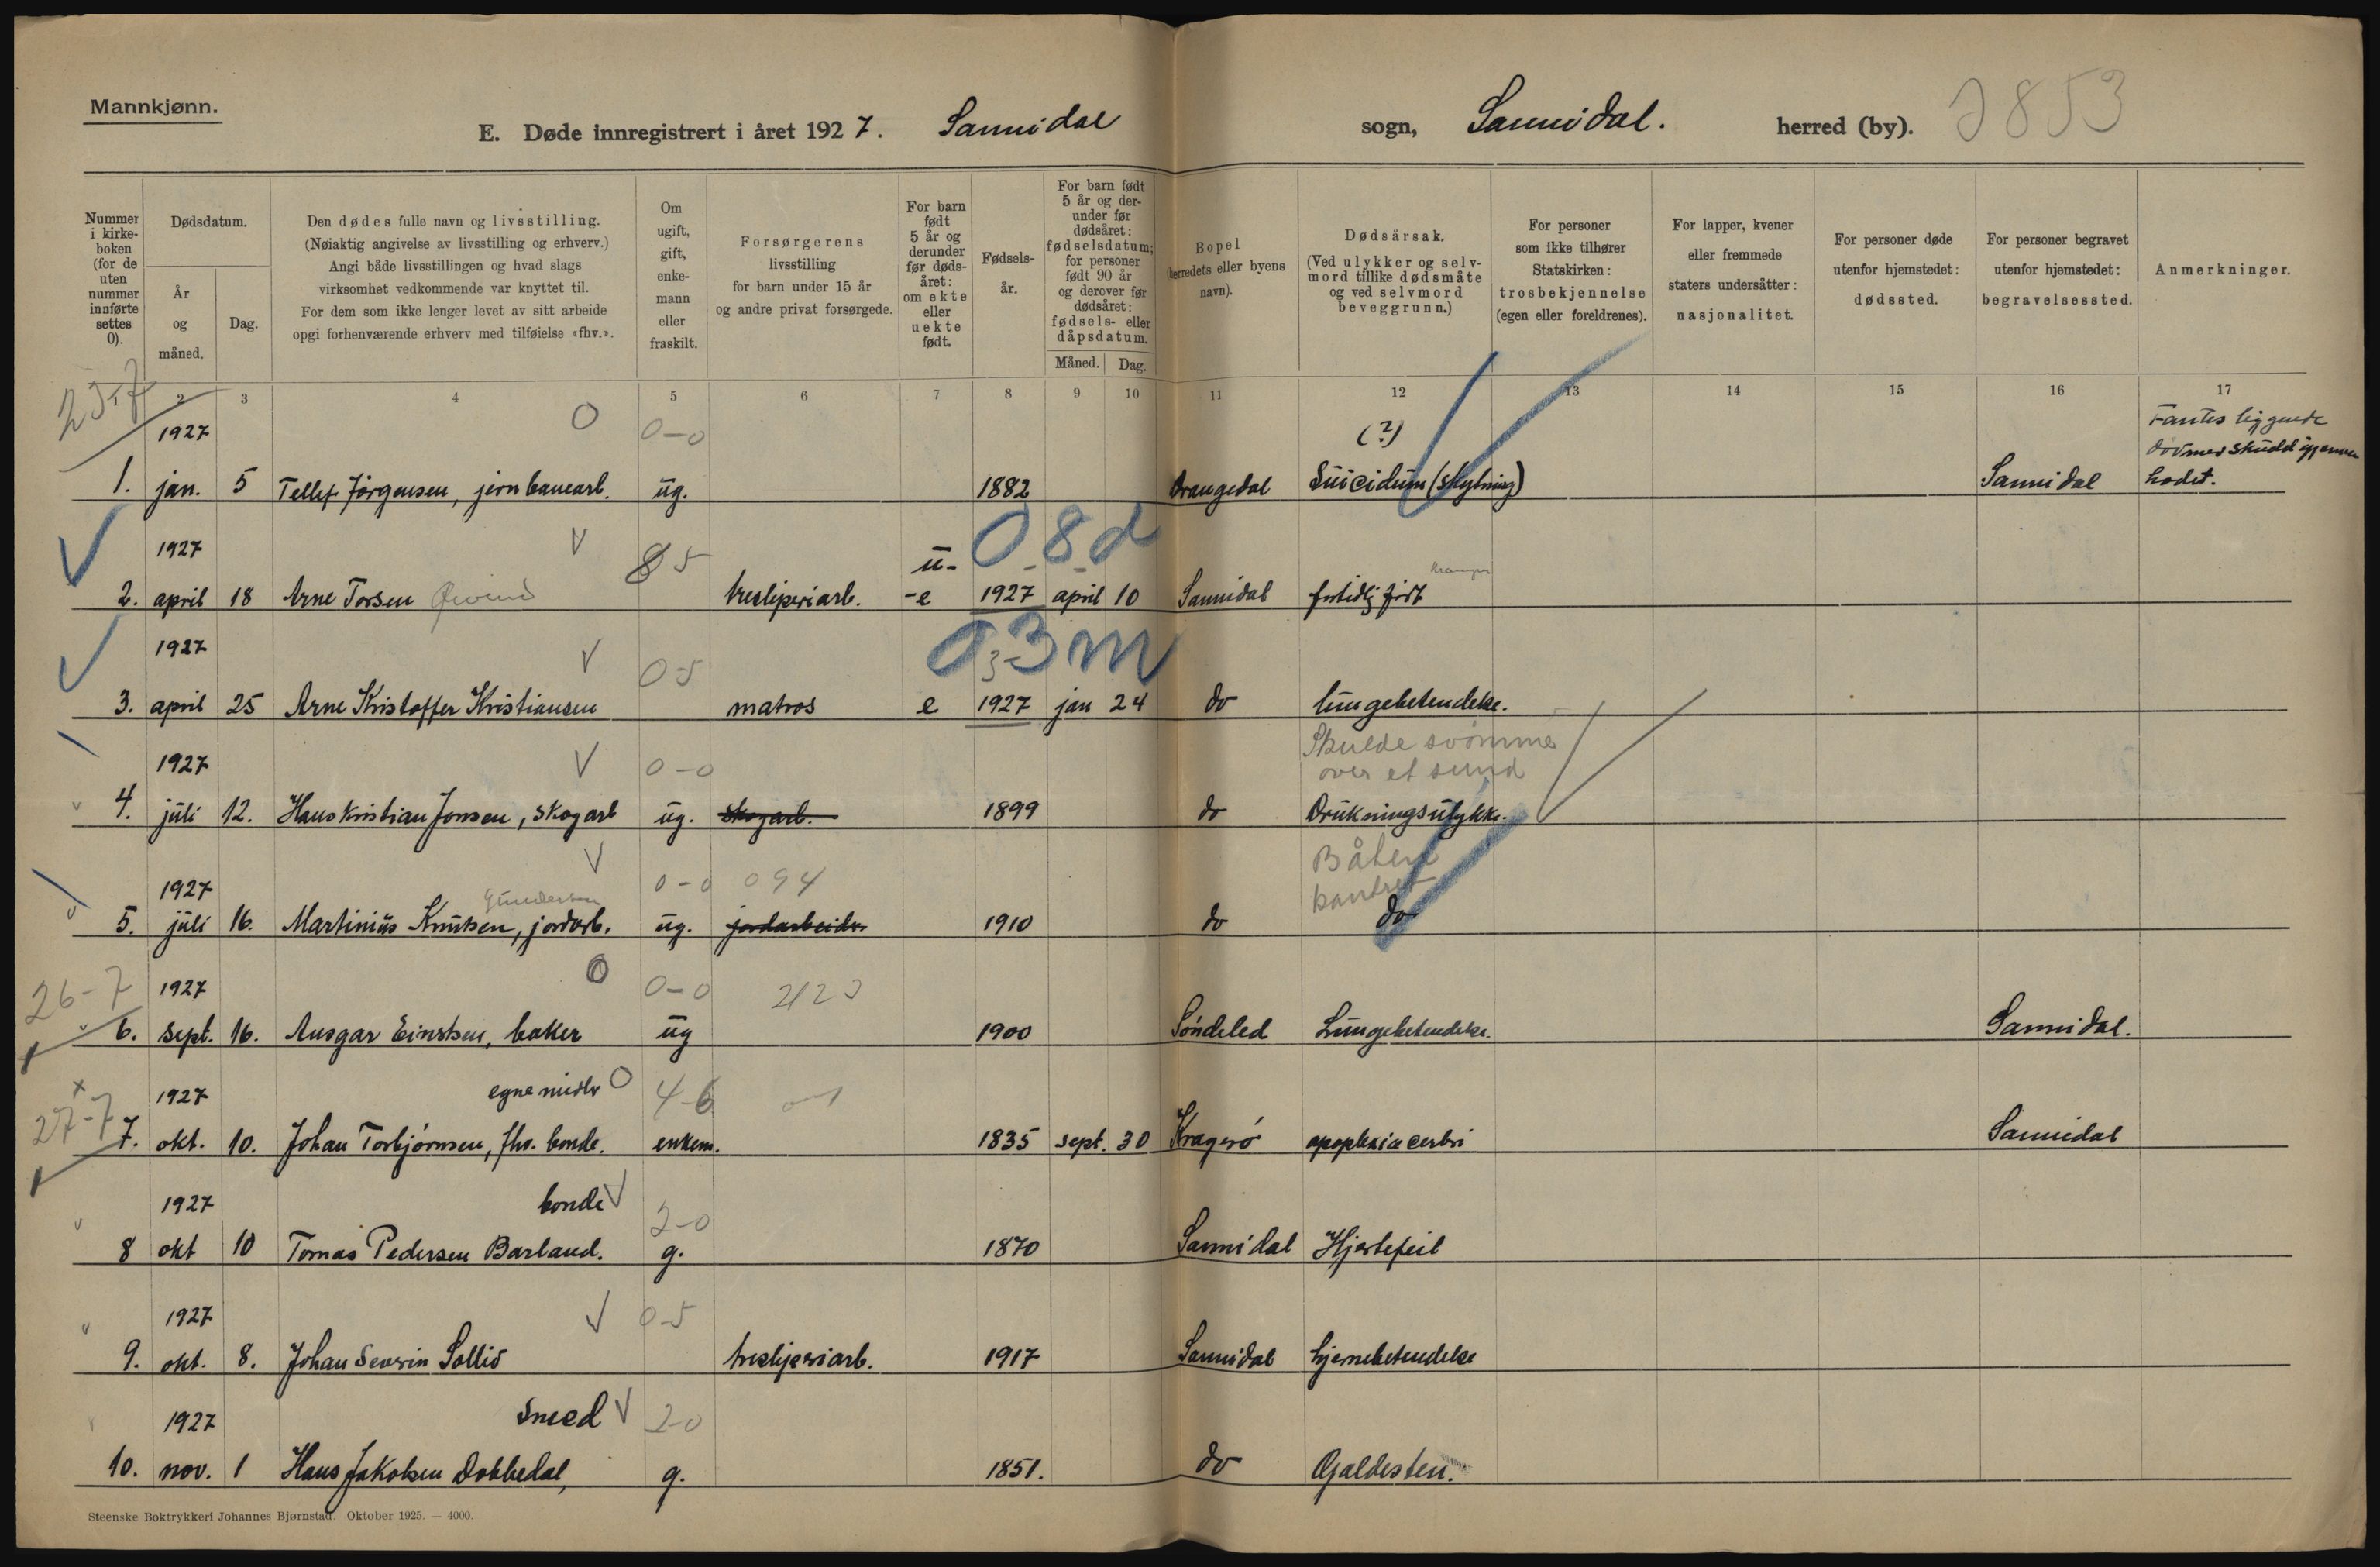 Mannkjønn.
E. Døde innregistrert i året 1927. Sannidal sogn, Sannidal. herred (by).
Nummer i kirke- boken (for de uten nummer innførte settes 0).
Dødsdatum.
År og måned.
Dag.
Den dødes fulle navn og livsstilling.
(Nøiaktig angivelse av livsstilling og erhverv.)
Angi både livsstillingen og hvad slags
virksomhet vedkommende var knyttet til.
For dem som ikke lenger levet av sitt arbeide
opgi forhenværende erhverv med tilføielse «fhv.».
Om ugift, gift, enke- mann eller fraskilt.
Forsørgerens
livsstilling
for barn under 15 år
og andre privat forsørgede.
For barn født 5 år og derunder før døds- året: om ekte eller uekte født.
Fødsels- år.
For barn født 5 år og der- under før dødsåret: fødselsdatum; for personer født 90 år og derover før dødsåret: fødsels- eller dåpsdatum.
Måned. Dag.
Bopel
(herredets eller byens
navn).
Dødsårsak.
(Ved ulykker og selv-
mord tillike dødsmåte
og ved selvmord
beveggrunn.)
For personer
som ikke tilhører
Statskirken:
trosbekjennelse
(egen eller foreldrenes).
For lapper, kvener
eller fremmede
staters undersåtter:
nasjonalitet.
For personer døde
utenfor hjemstedet:
dødssted.
For personer begravet
utenfor hjemstedet:
begravelsessted.
Anmerkninger.
1 2 3 4 5 6 7 8 9 10 11 12 13 14 15 16 17
25-7 1927 0 0-0 (?) Fantes liggende
død med skudd igjennem
1. jan. 5 Tellef Jørgensen, jernbanearb. ug. 1882 Drangedal Suicidum (skytning) Sannidal hodet.
1927 V 8 5 u- 0 8 d
2. april 18 Arne Torsen Øivind tresliperiarb. -e 1927 april 10 Sannidal fortidlig født
1927 V 0-5 0,3 m
3. april 25 Arne Kristoffer Kristiansen matros e 1927 jan 24 do lungebetendelse.
Skulde svømme
1927 V 0-0 over et sund
4. juli 12. Hans Kristian Jonsen, skogarb ug. skogarb. 1899 do Drukningsulykke.
Båten
1927 Gundersen V 0-0 094 kantret
5. juli 16. Martinius Knutsen, jordarb. ug. jordarbeider 1910 do do
26-7 1927 0 0-0
6. sept. 16. Ansgar Einertsen, baker ug 1900 Søndeled Lungebetendelse. Sannidal.
27-7 1927 egne midler 0 4-6
7. okt. 10. Johan Torbjørnsen, fhv. bonde. enkem. 1835 sept. 30 Kragerø apoplexia cerbri Sannidal
1927 bonde V 2-0
8 okt 10 Tomas Pedersen Barland. g. 1870 Sannidal Hjertefeil
1927 V 0-5
9. okt. 8. Johan Severin Sollid tresliperiarb. 1917 Sannidal hjernebetendelse
1927 Smed V 2-0
10. nov. 1 Hans Jakobsen Dobbedal, g. 1851. do Galdesten.
Steenske Boktrykkeri Johannes Bjørnstad. Oktober 1925. — 4000.